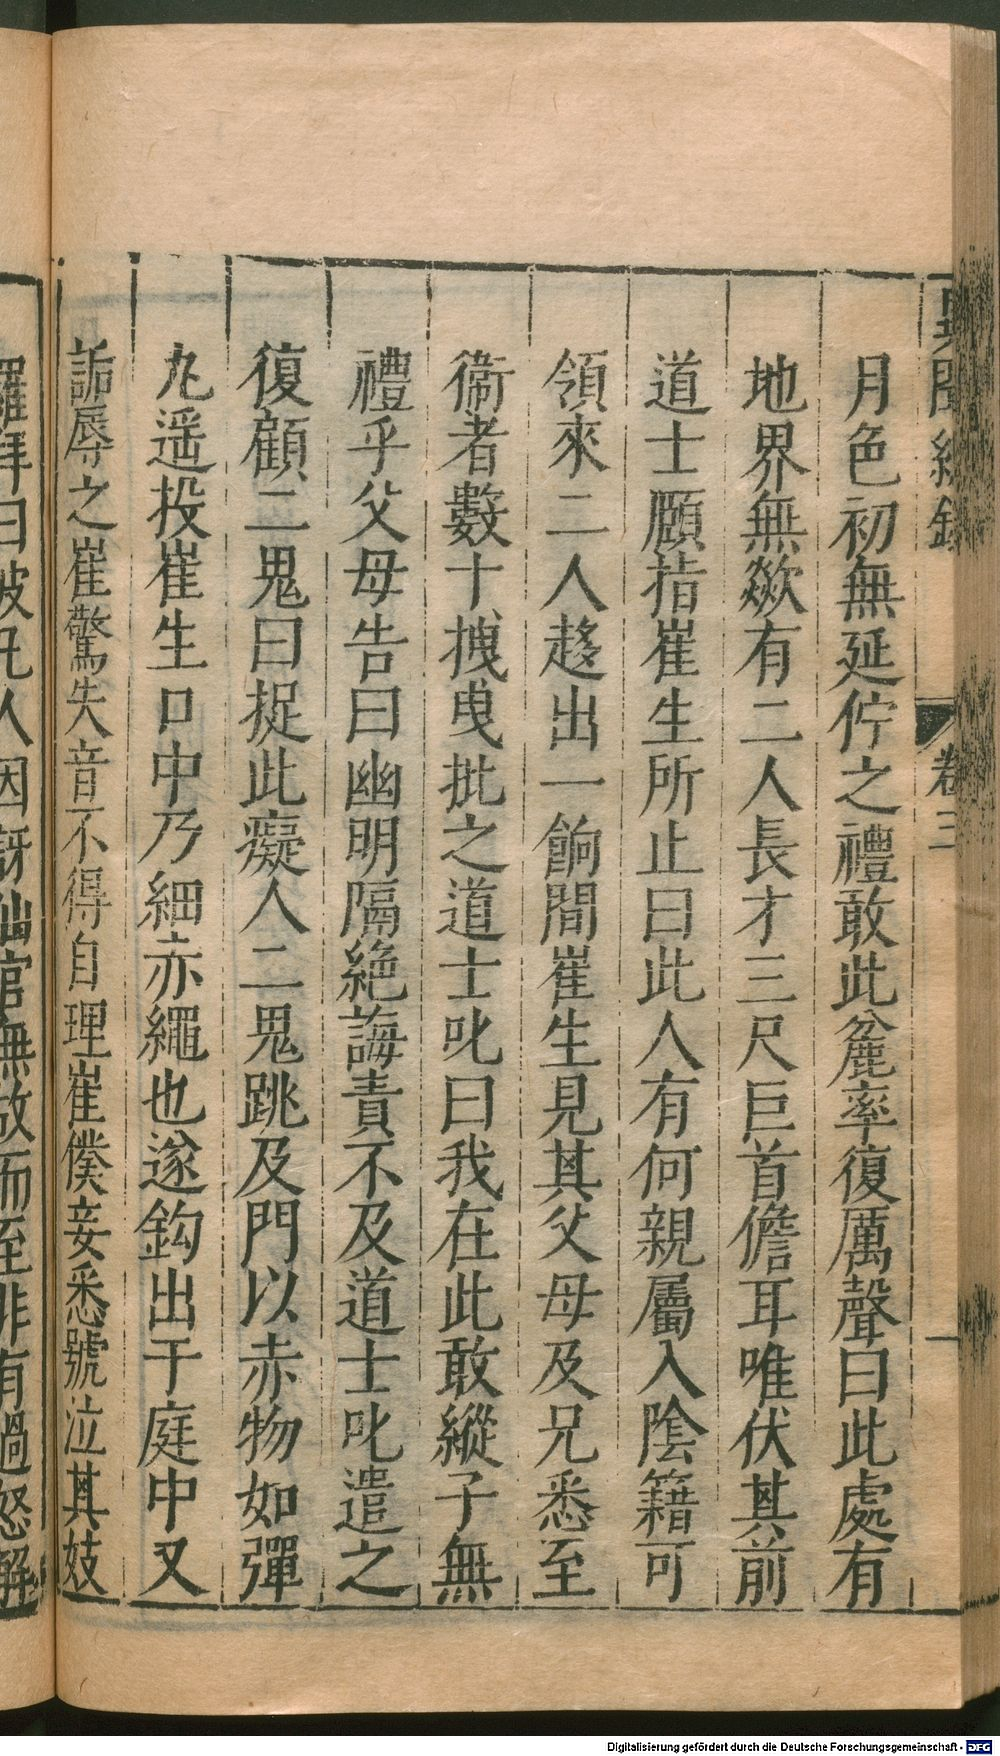 異聞總錄 卷三 一
月色初無延佇之禮敢此麄率復厲聲曰此處有
地界無歘有二人長才三尺巨首儋耳唯伏其前
道士頤指崔生所止曰此人有何親屬入陰籍可
領來二人趍出一餉間崔生見其父母及兄悉至
衞者數十拽曳批之道士叱曰我在此敢縱子無
禮乎父母告曰幽明隔絶誨責不及道士叱遣之
復顧二鬼曰捉此癡人二鬼跳及門以赤物如彈
丸遥投崔生口中乃細赤繩也遂鈎出于庭中又
詬辱之崔驚失音不得自理崔僕妾悉號泣其妓
羅拜曰彼凡人因訝仙官無故而至非有過怒解
Digitalisierung gefördert durch die Deutsche Forschungsgemeinschaft - DFG